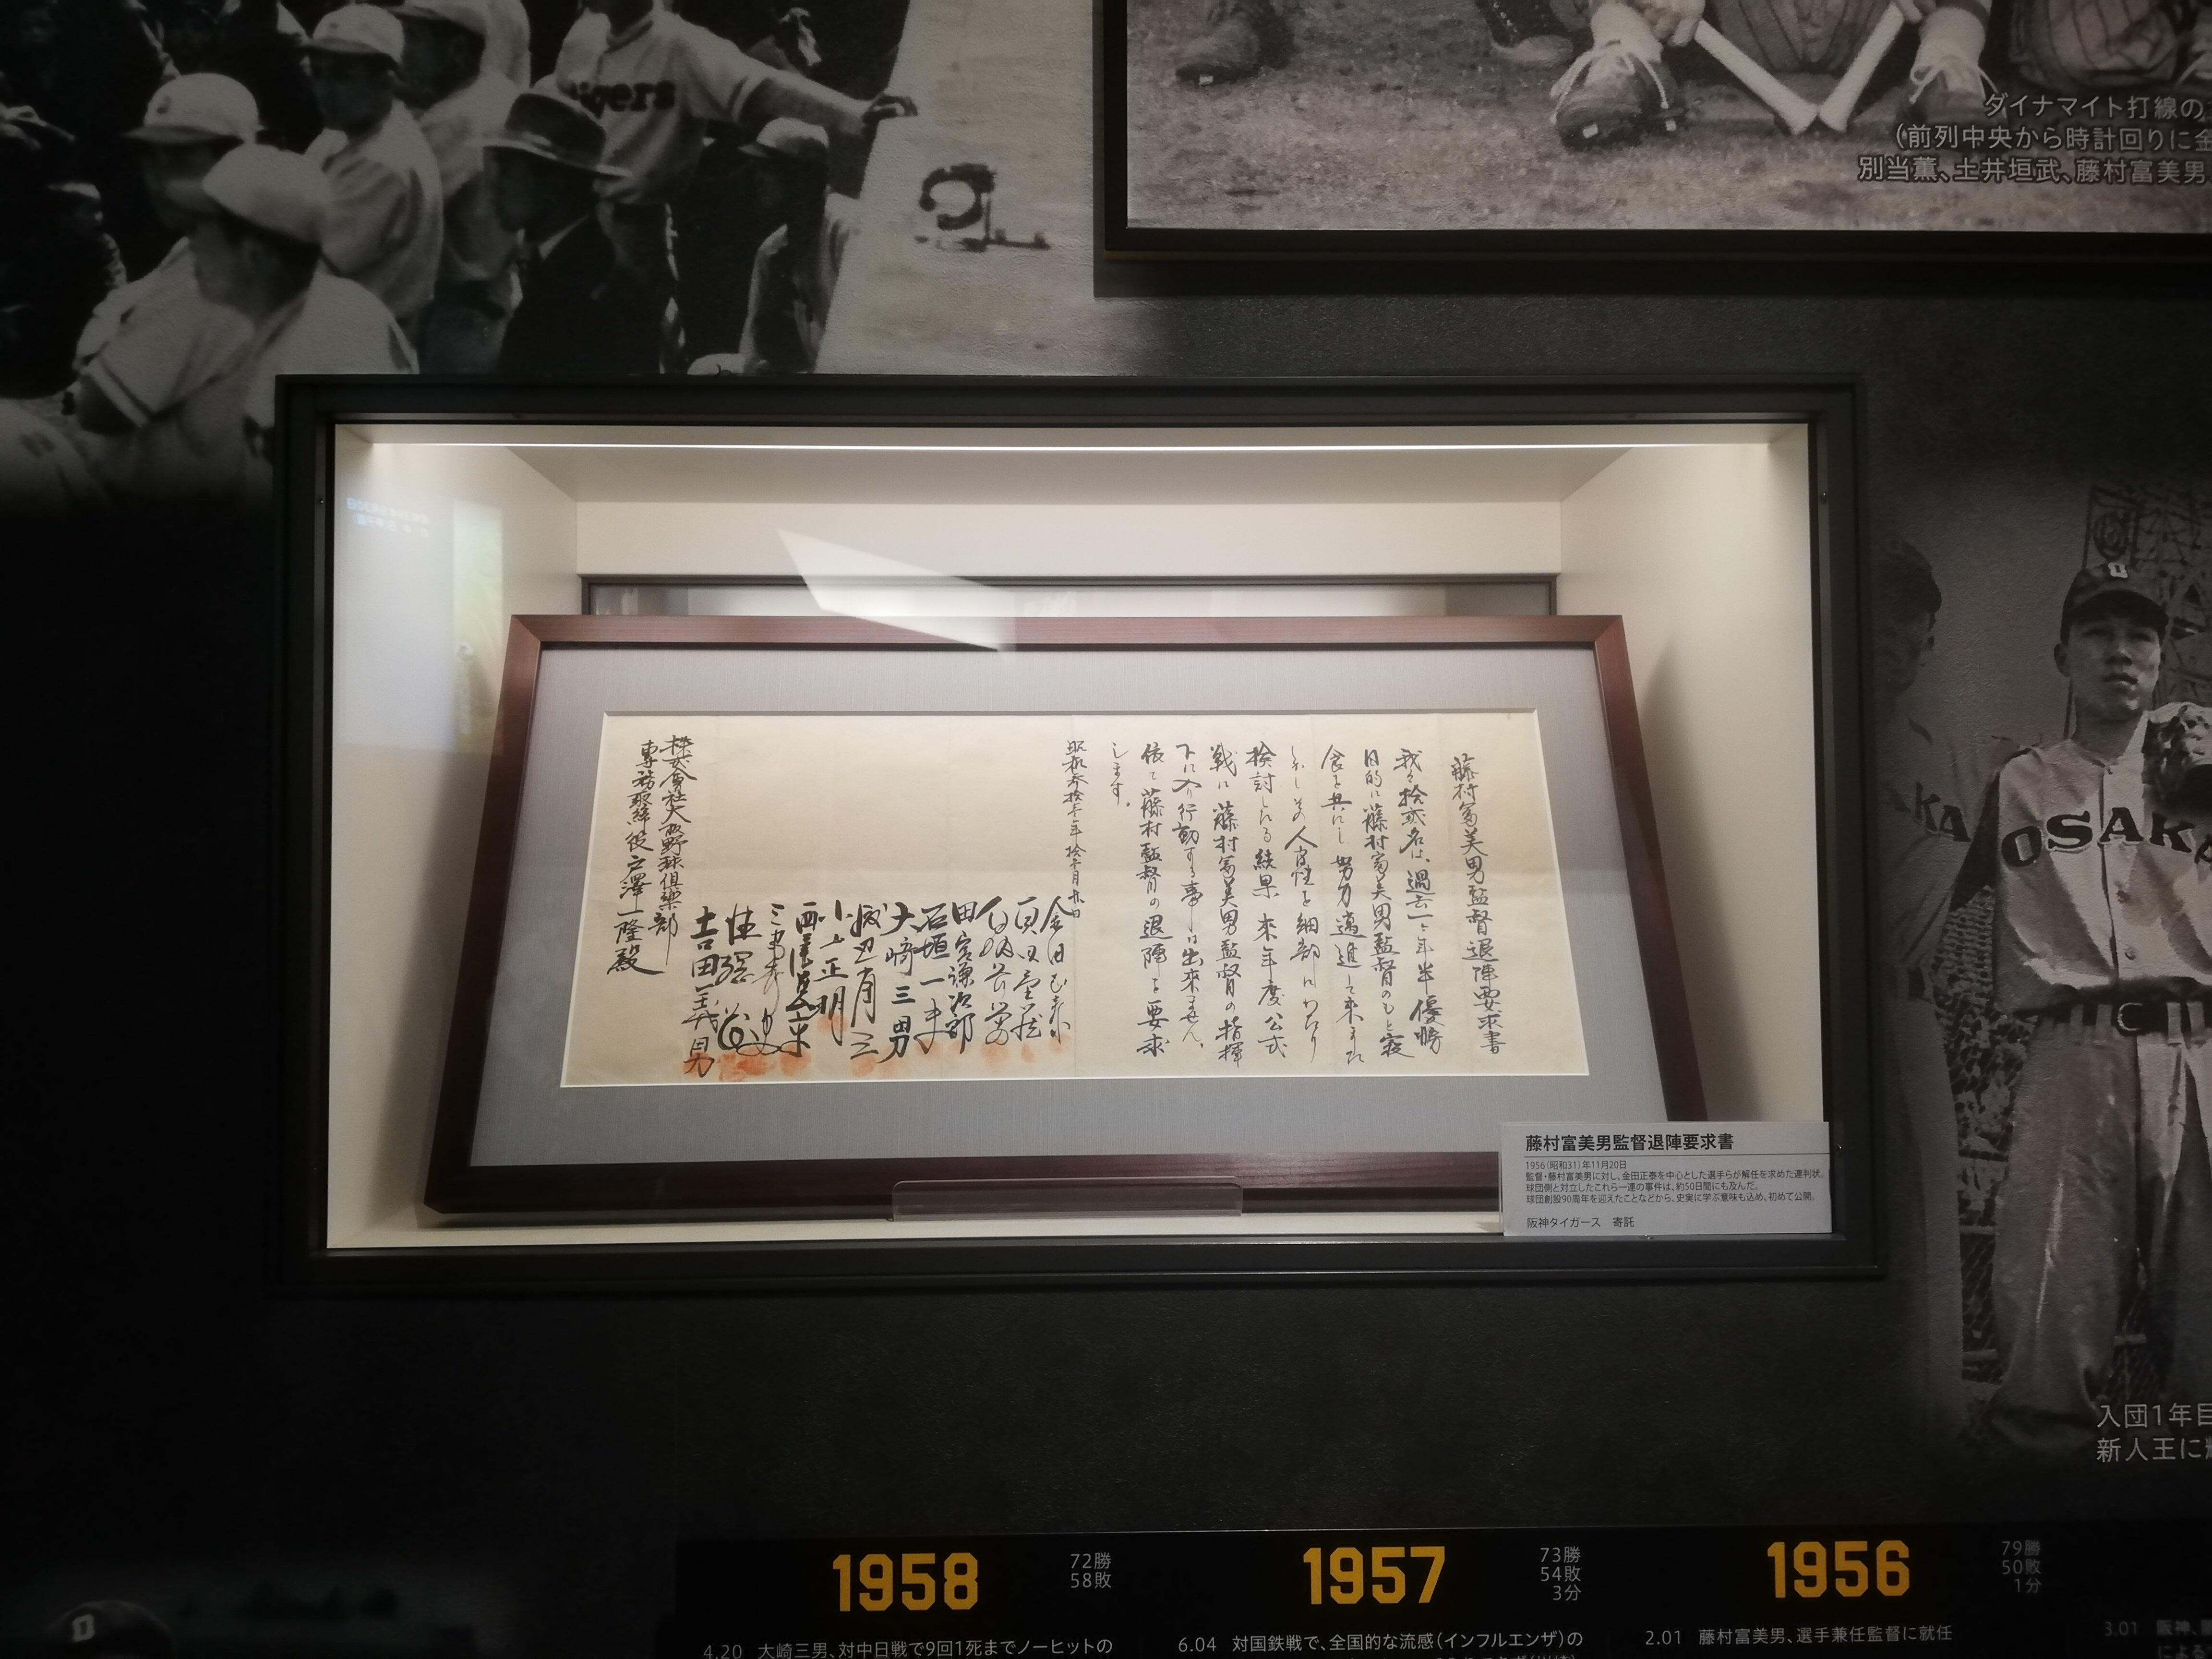 Tigers
ダイナマイト打線の
(前列中央から時計回りに金
別当薫、土井垣武、藤村富美男
藤村富美男監督退陣要求書
我々拾弐名は、過去一ヶ年半優勝
目的に藤村富美男監督のもと寝
食を共にし努力邁進して来ました
しかしその人間性を細部にわたり
検討したる結果来年度公式
戦に藤村富美男監督の指揮
下に入り行動する事は出来ません。
依て藤村監督の退陣を要求
します。
昭和参拾壱年拾壱月廿日
金田正泰
真田重蔵
白坂長栄
田宮謙次郎
石垣一夫
大崎三男
渡辺省三
小山正明
西尾慈高
三船正俊
吉田義男
株式會社大阪野球倶楽部
専務取締役戸澤一隆殿
藤村富美男監督退陣要求書
1956(昭和31)年11月20日
監督・藤村富美男に対し、金田正泰を中心とした選手らが解任を求めた連判状。
球団側と対立したこれら一連の事件は、約50日間にも及んだ。
球団創設90周年を迎えたことなどから、史実に学ぶ意味も込め、初めて公開。
阪神タイガース 寄託
KA
OSAKA
入団1年目
新人王に
1958
72勝
58敗
4.20 大崎三男、対中日戦で9回1死までノーヒットの
1957
73勝
54敗
3分
6.04 対国鉄戦で、全国的な流感(インフルエンザ)の
1956
79勝
50敗
1分
2.01 藤村富美男、選手兼任監督に就任
3.01 阪神、
による